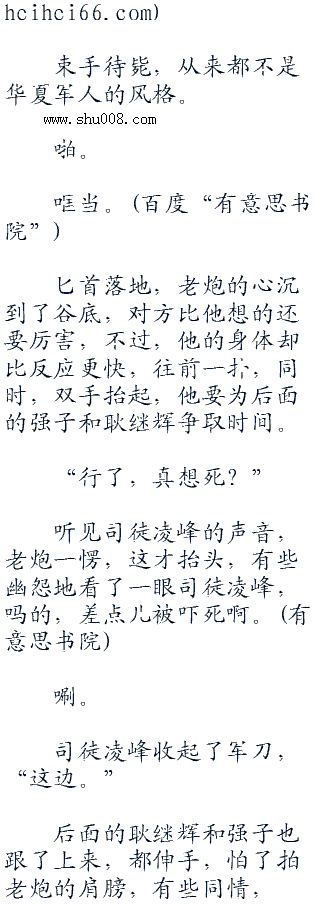 hcihci66.com)
束手待毙，从来都不是
华夏军人的风格。
www.shu008.com
啪。
哐当。(百度“有意思书
院”)
匕首落地，老炮的心沉
到了谷底，对方比他想的还
要厉害，不过，他的身体却
比反应更快，往前一扑，同
时，双手抬起，他要为后面
的强子和耿继辉争取时间。
“行了，真想死？”
听见司徒凌峰的声音，
老炮一愣，这才抬头，有些
幽怨地看了一眼司徒凌峰，
吗的，差点儿被吓死啊。(有
意思书院)
唰。
司徒凌峰收起了军刀，
“这边。”
后面的耿继辉和强子也
跟了上来，都伸手，怕了拍
老炮的肩膀，有些同情，